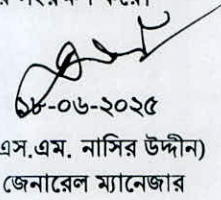 ১৮-০৬-২০২৫
এস.এম. নাসির উদ্দীন)
জেনারেল ম্যানেজার